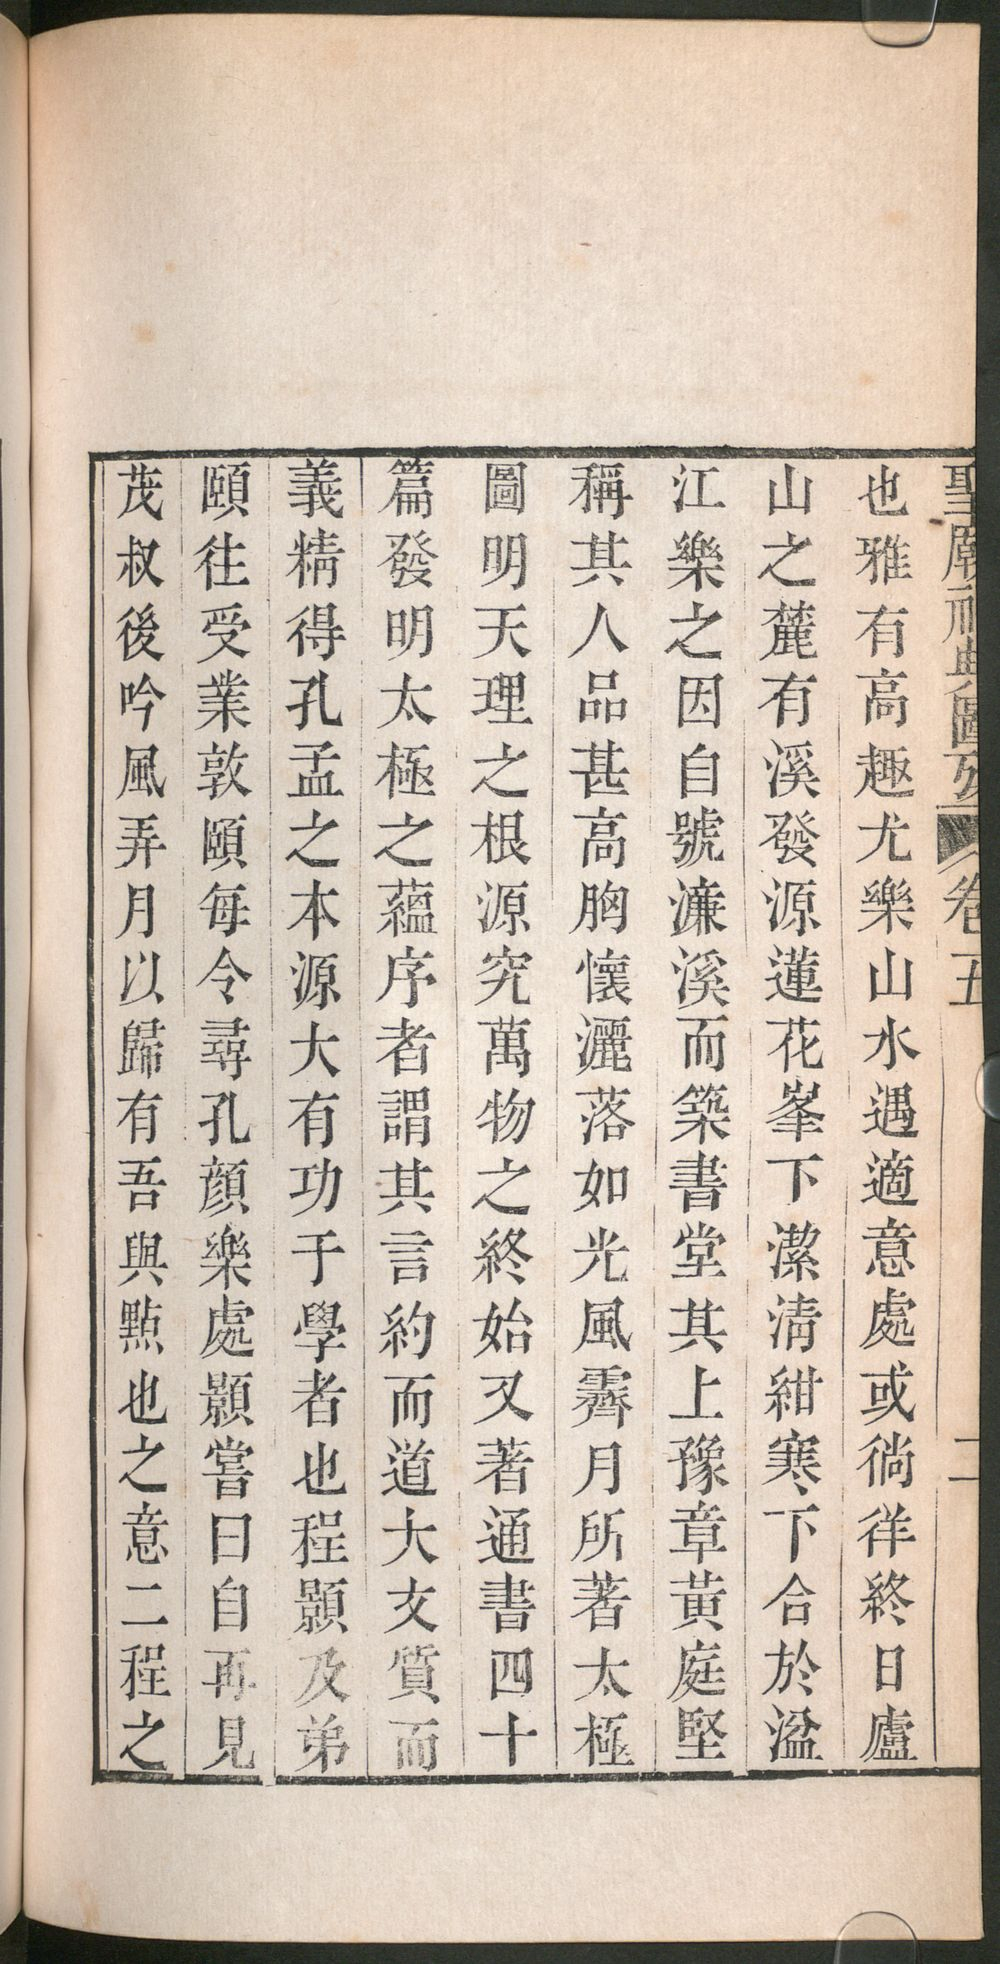 聖廟祀典圖攷 卷五 二
也雅有高趣尤樂山水遇適意處或徜徉終日廬
山之麓有溪發源蓮花峯下潔清紺寒下合於湓
江樂之因自號濂溪而築書堂其上豫章黃庭堅
稱其人品甚高胸懷灑落如光風霽月所著太極
圖明天理之根源究萬物之終始又著通書四十
篇發明太極之蘊序者謂其言約而道大文質而
義精得孔孟之本源大有功于學者也程顥及弟
頤往受業敦頤每令尋孔顏樂處顥嘗曰自再見
茂叔後吟風弄月以歸有吾與點也之意二程之